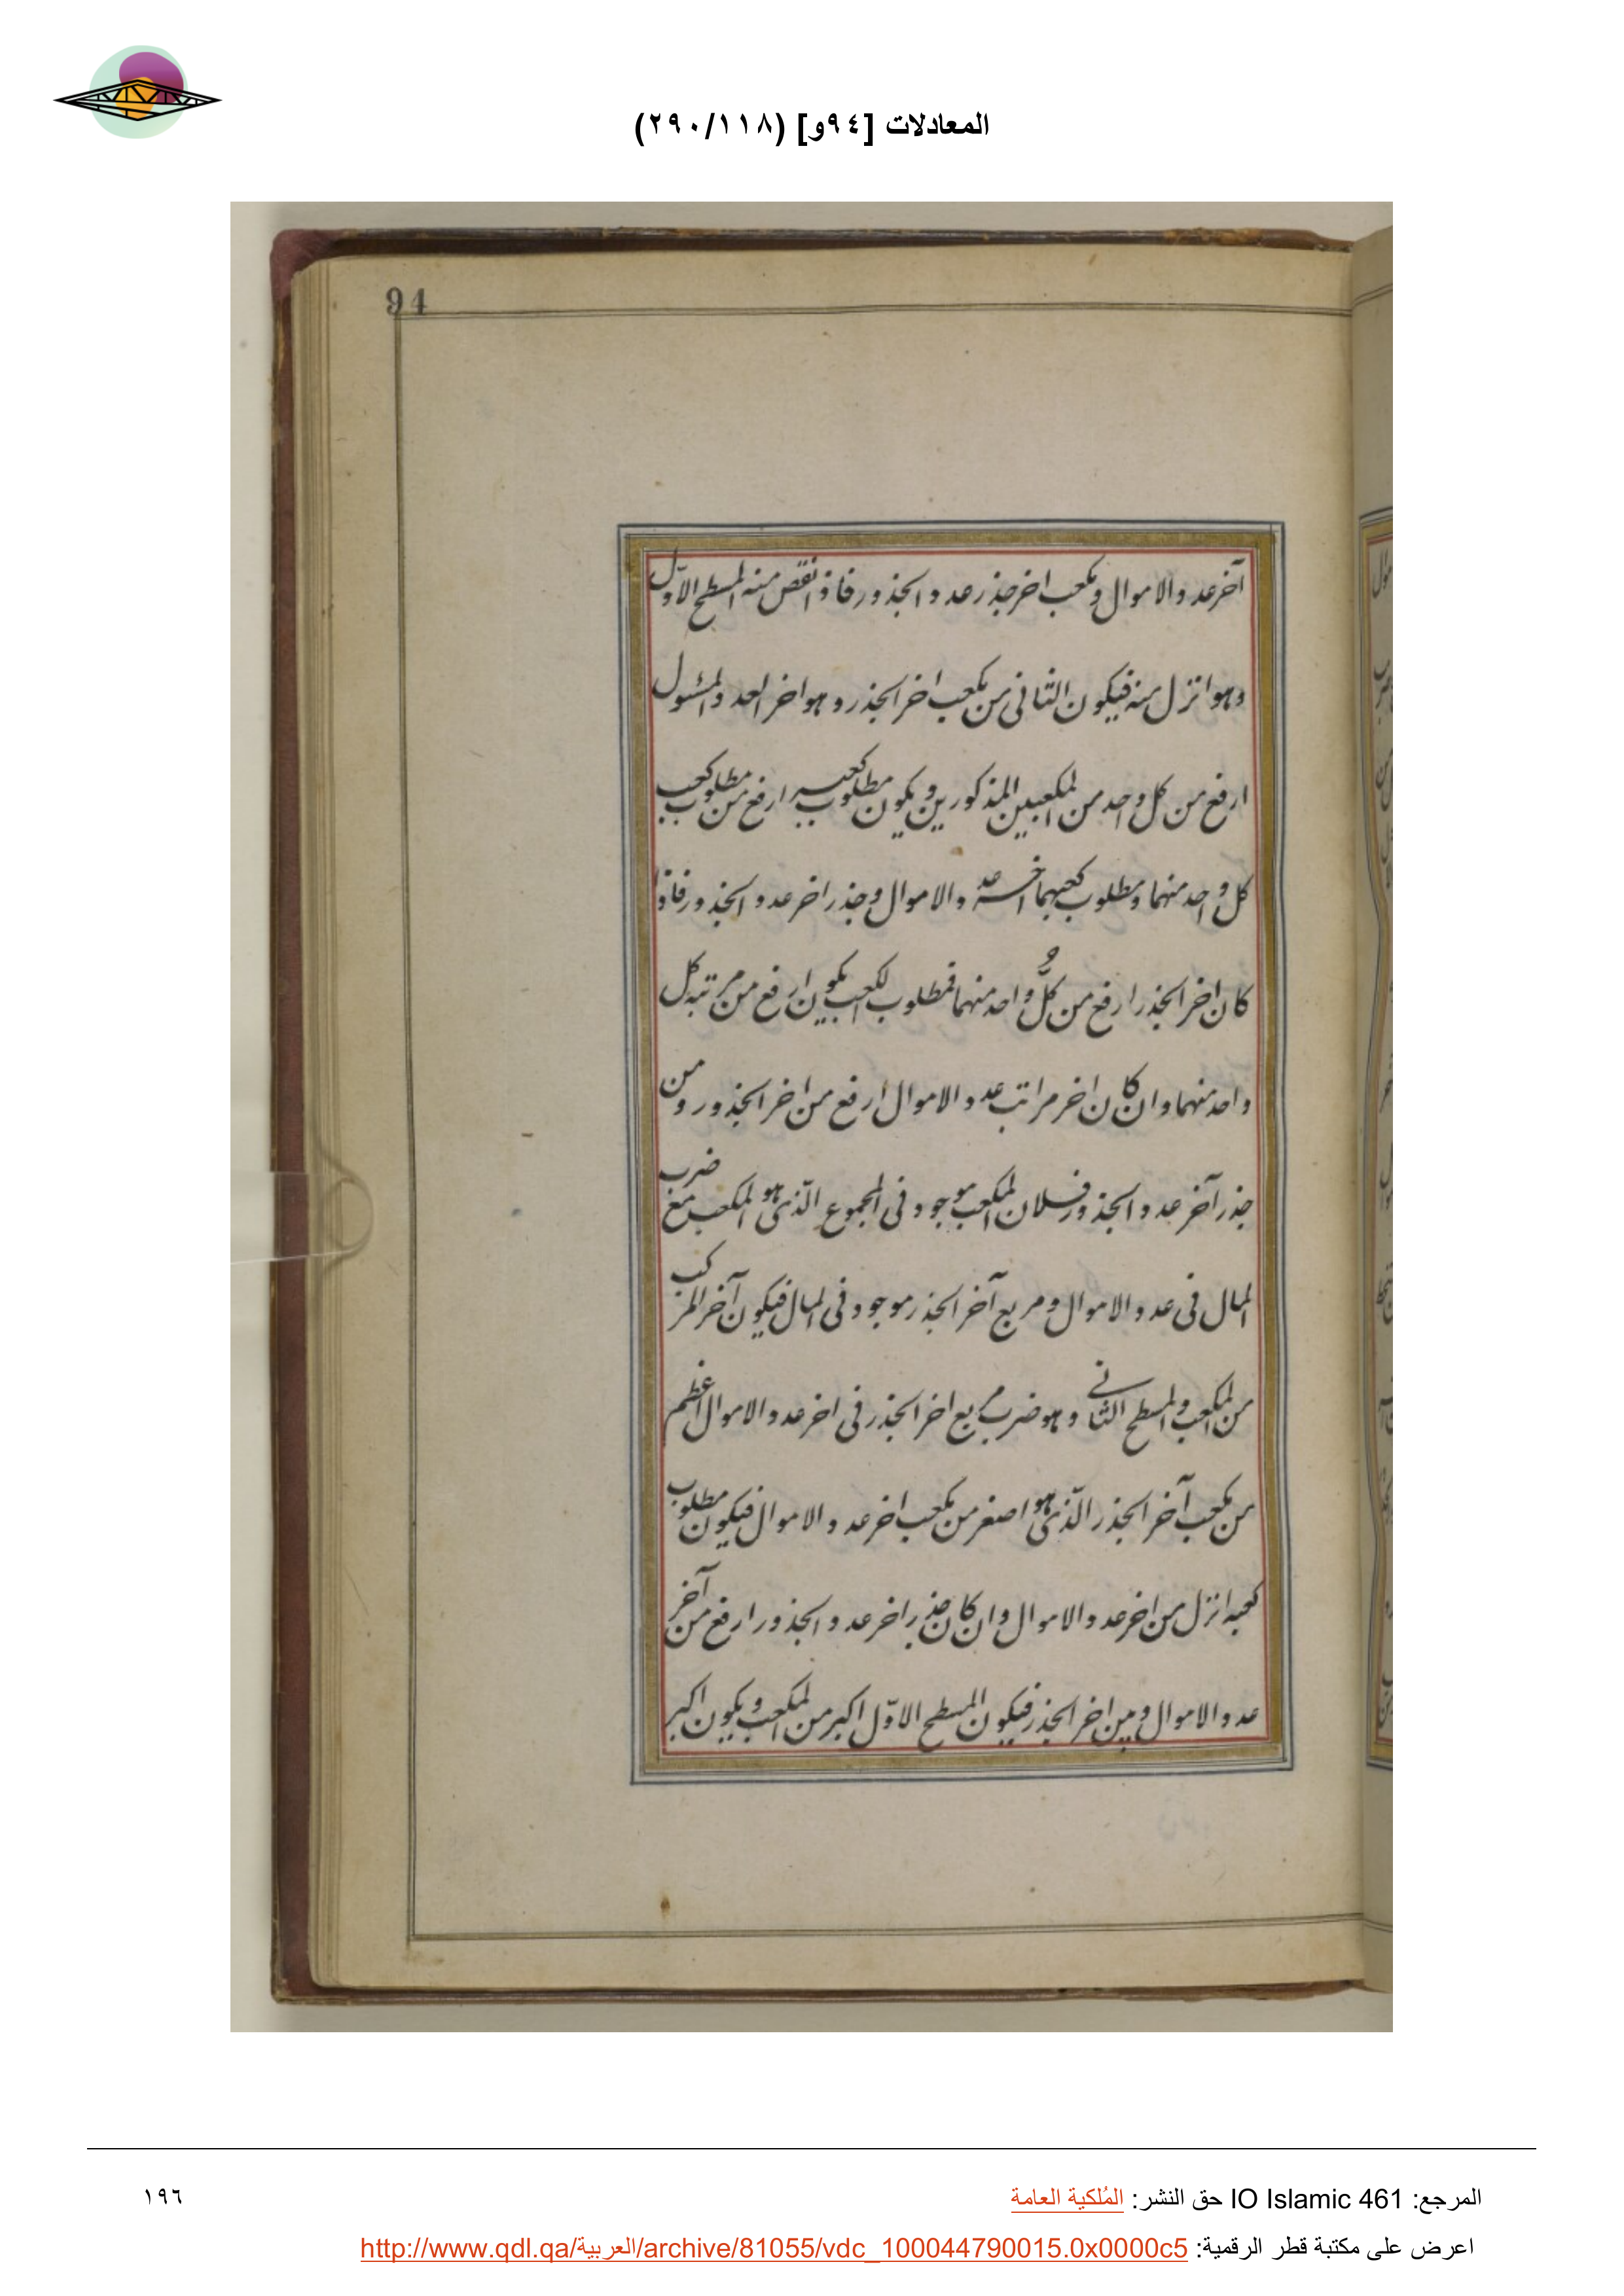 المعادلات [٩٤و] (٢٩٠/١١٨)
94
آخر عدد الاموال ومكعب اخر جذر عدد الجذور فاذا نقص منه المسطح الاول
وهو انزل منه فيكون الثانى من مكعب اخر الجذر وهو اخر العدد والمسئول
ارفع من كل واحد من المكعبين المذكورين ويكون مطلوب كعبه ارفع من مطلوب كعب
كل واحد منهما ومطلوب كعبهما اخر عدد الاموال وجذر اخر عدد الجذور فاذا
كان اخر الجذر ارفع من كلّ واحد منهما فمطلوب الكعب يكون ارفع من مرتبه كل
واحد منهما وان كان اخر مراتب عدد الاموال ارفع من اخر الجذور ومن
جذر آخر عدد الجذور فلان المكعب موجود فى المجموع الّذى هو المكعب مع ضرب
المال فى عدد الاموال ومربع آخر الجذر موجود فى المال فيكون آخر المركب
من المكعب والمسطح الثانى وهو ضرب مربع اخر الجذر فى اخر عدد الاموال اعظم
من مكعب آخر الجذر الّذى هو اصغر من مكعب اخر عدد الاموال فيكون مطلوب
كعبه انزل من اخر عدد الاموال وان كان جذر اخر عدد الجذور ارفع من آخر
عدد الاموال ومن اخر الجذر فيكون المسطح الاوّل اكبر من المكعب ويكون اكبر
المرجع: IO Islamic 461 حق النشر: المُلكية العامة
١٩٦
اعرض على مكتبة قطر الرقمية: http://www.qdl.qa/العربية/archive/81055/vdc_100044790015.0x0000c5